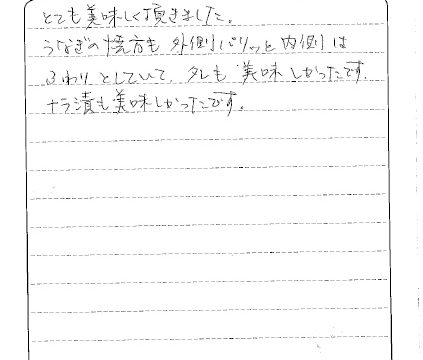 とても美味しく頂きました。
うなぎの焼方も外側パリッと内側は
ふわりとしていて、タレも美味しかったです。
ナラ漬も美味しかったです。